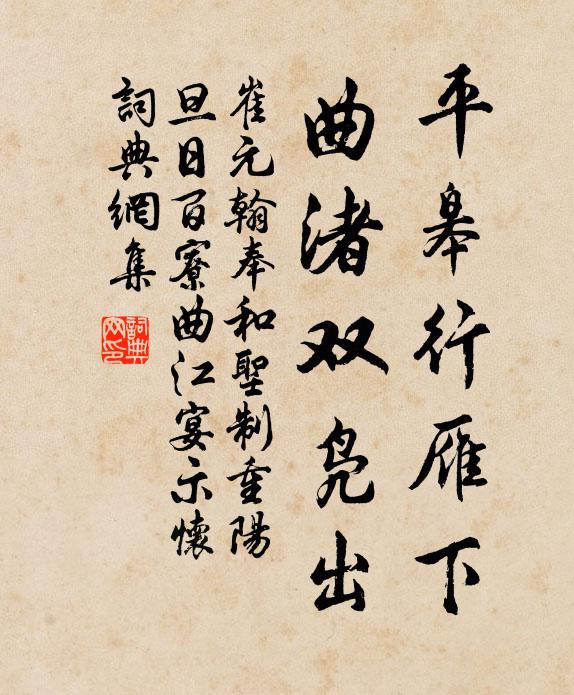 平皋行雁下
曲渚双凫出
崔元翰奉和聖制重陽
旦日百寮曲江宴示懷
詞典網集
詞典
网印